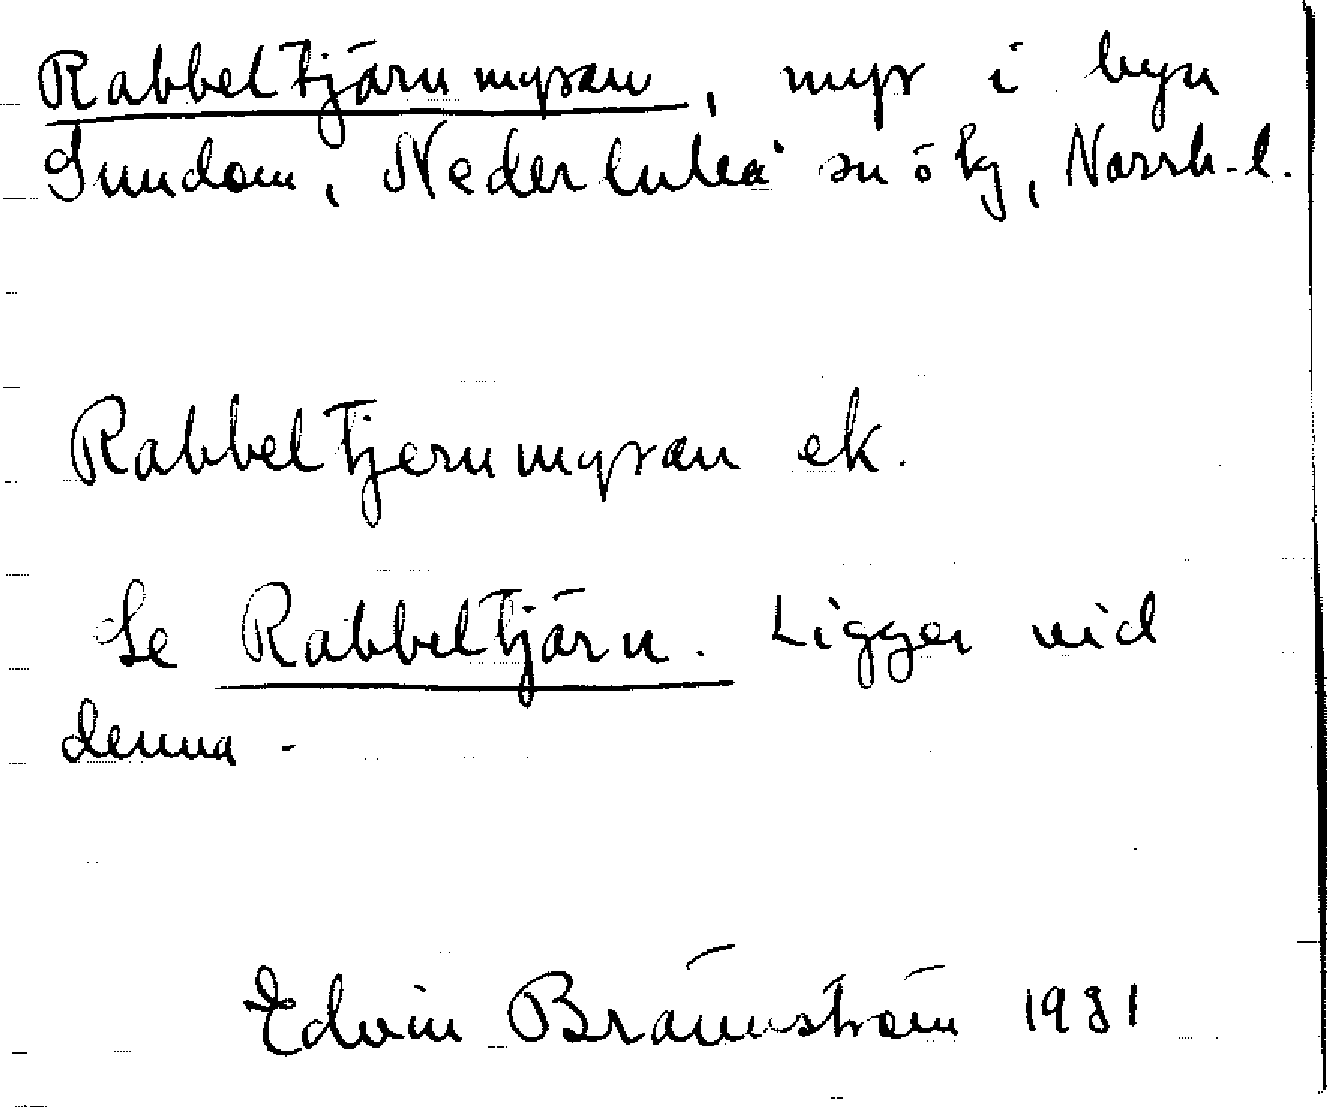 Rabbeltjärnmyran, myr i byn
Sundom, Nederluleå sn ö tg, Norrb.l.
Rabbeltjernmyran ek.
Se Rabbeltjärn. Ligger vid
denna.
Edvin Brännström 1981